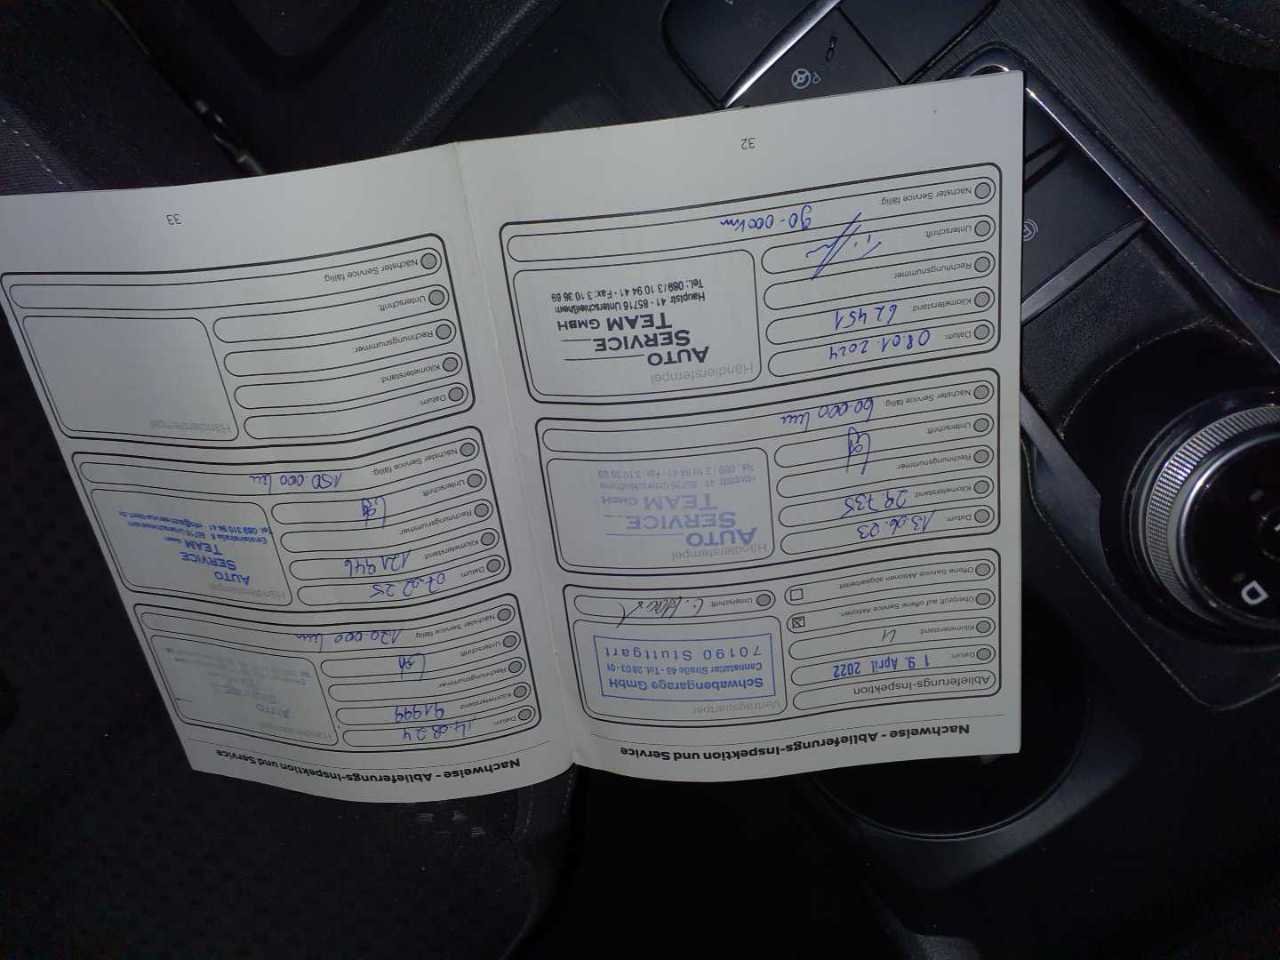 Nachweise - Ablieferungs-Inspektion und Service
Ablieferungs-Inspektion
Datum:
19. April 2022
Kilometerstand
4
Überprüft auf offene Service Aktionen
Offene Service Aktionen abgearbeitet
Vertragspartner
Schwabengarage GmbH
Cannstatter Straße 46 - Tel. 28 03 - 01
70190 Stuttgart
Unterschrift:
Datum:
13.06.23
Kilometerstand:
29.735
Rechnungsnummer
Unterschrift:
Nächster Service fällig:
60.000 km
Händlerstempel
AUTO
SERVICE
TEAM GMBH
Hauptstr. 41 - 85716 Unterschleißheim
Tel.: 089 / 3 10 94 41 - Fax: 3 10 36 69
Datum:
08.01.2024
Kilometerstand:
62451
Rechnungsnummer:
Unterschrift:
Nächster Service fällig:
90.000km
Händlerstempel
AUTO
SERVICE
TEAM GMBH
Hauptstr. 41 - 85716 Unterschleißheim
Tel.: 089 / 3 10 94 41 - Fax: 3 10 36 69
32
Nachweise - Ablieferungs-Inspektion und Service
Datum:
14.08.24
Kilometerstand
91999
Rechnungsnummer
Unterschrift:
Nächster Service fällig:
120.000 km
Händlerstempel
AUTO
Datum:
07.02.25
Kilometerstand:
121946
Rechnungsnummer:
Unterschrift:
Nächster Service fällig:
150.000 km
Händlerstempel
AUTO
SERVICE
TEAM GmbH
Datum:
Kilometerstand:
Rechnungsnummer:
Unterschrift:
Nächster Service fällig:
Händlerstempel
33
P
D